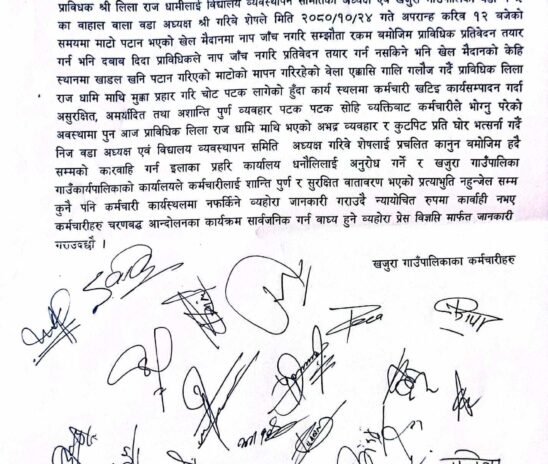 प्राविधिक श्री लिला राज धामीलाई विद्यालय व्यवस्थापन समितिका अध्यक्ष एवं खजुरा गाउँपालिका
का वाहाल वाला वडा अध्यक्ष श्री गरिवे शेपले मिति २०८०/१०/२४ गते अपरान्ह करिव १२ बजेको
समयमा माटो पटान भएको खेल मैदानमा नाप जाँच नगरि सम्झौता रकम बमोजिम प्राविधिक प्रतिवेदन तयार
गर्न भनि दबाव दिदा प्राविधिकले नाप जाँच नगरि प्रतिवेदन तयार गर्न नसकिने भनि खेल मैदानको केहि
स्थानमा खाडल खनि पटान गरिएको माटोको मापन गरिरहेको वेला एक्कासि गालि गलौज गर्दै प्राविधिक लिला
राज धामि माथि मुक्का प्रहार गरि चोट पटक लागेको हुँदा कार्य स्थलमा कर्मचारी खटिइ कार्यसम्पादन गर्दा
असुरक्षित, अमर्यादित तथा अशान्ति पुर्ण व्यवहार पटक पटक सोहि व्यक्तिबाट कर्मचारीले भोग्नु परेको
अवस्थामा पुन आज प्राविधिक लिला राज धामि माथि भएको अभद्र व्यवहार र कुटपिट प्रति घोर भत्सर्ना गर्दै
निज वडा अध्यक्ष एवं विद्यालय व्यवस्थापन समिति अध्यक्ष गरिवे शेपलाई प्रचलित कानुन बमोजिम हदै
सम्मको कारवाहि गर्न इलाका प्रहरि कार्यालय धनौलीलाई अनुरोध गर्ने र खजुरा गाउँपालिका
गाउँकार्यपालिकाको कार्यालयले कर्मचारीलाई शान्ति पुर्ण र सुरक्षित वातावरण भएको प्रत्याभुति नहुन्जेल सम्म
कुनै पनि कर्मचारी कार्यस्थलमा नफर्किने व्यहोरा जानकारी गराउदै न्यायोचित रुपमा कार्वाही नभए
कर्मचारीहरु चरणबद्ध आन्दोलनका कार्यक्रम सार्वजनिक गर्न वाध्य हुने व्यहोरा प्रेस विज्ञप्ति मार्फत जानकारी
गराउदछौं ।
खजुरा गाउँपालिकाका कर्मचारीहरु